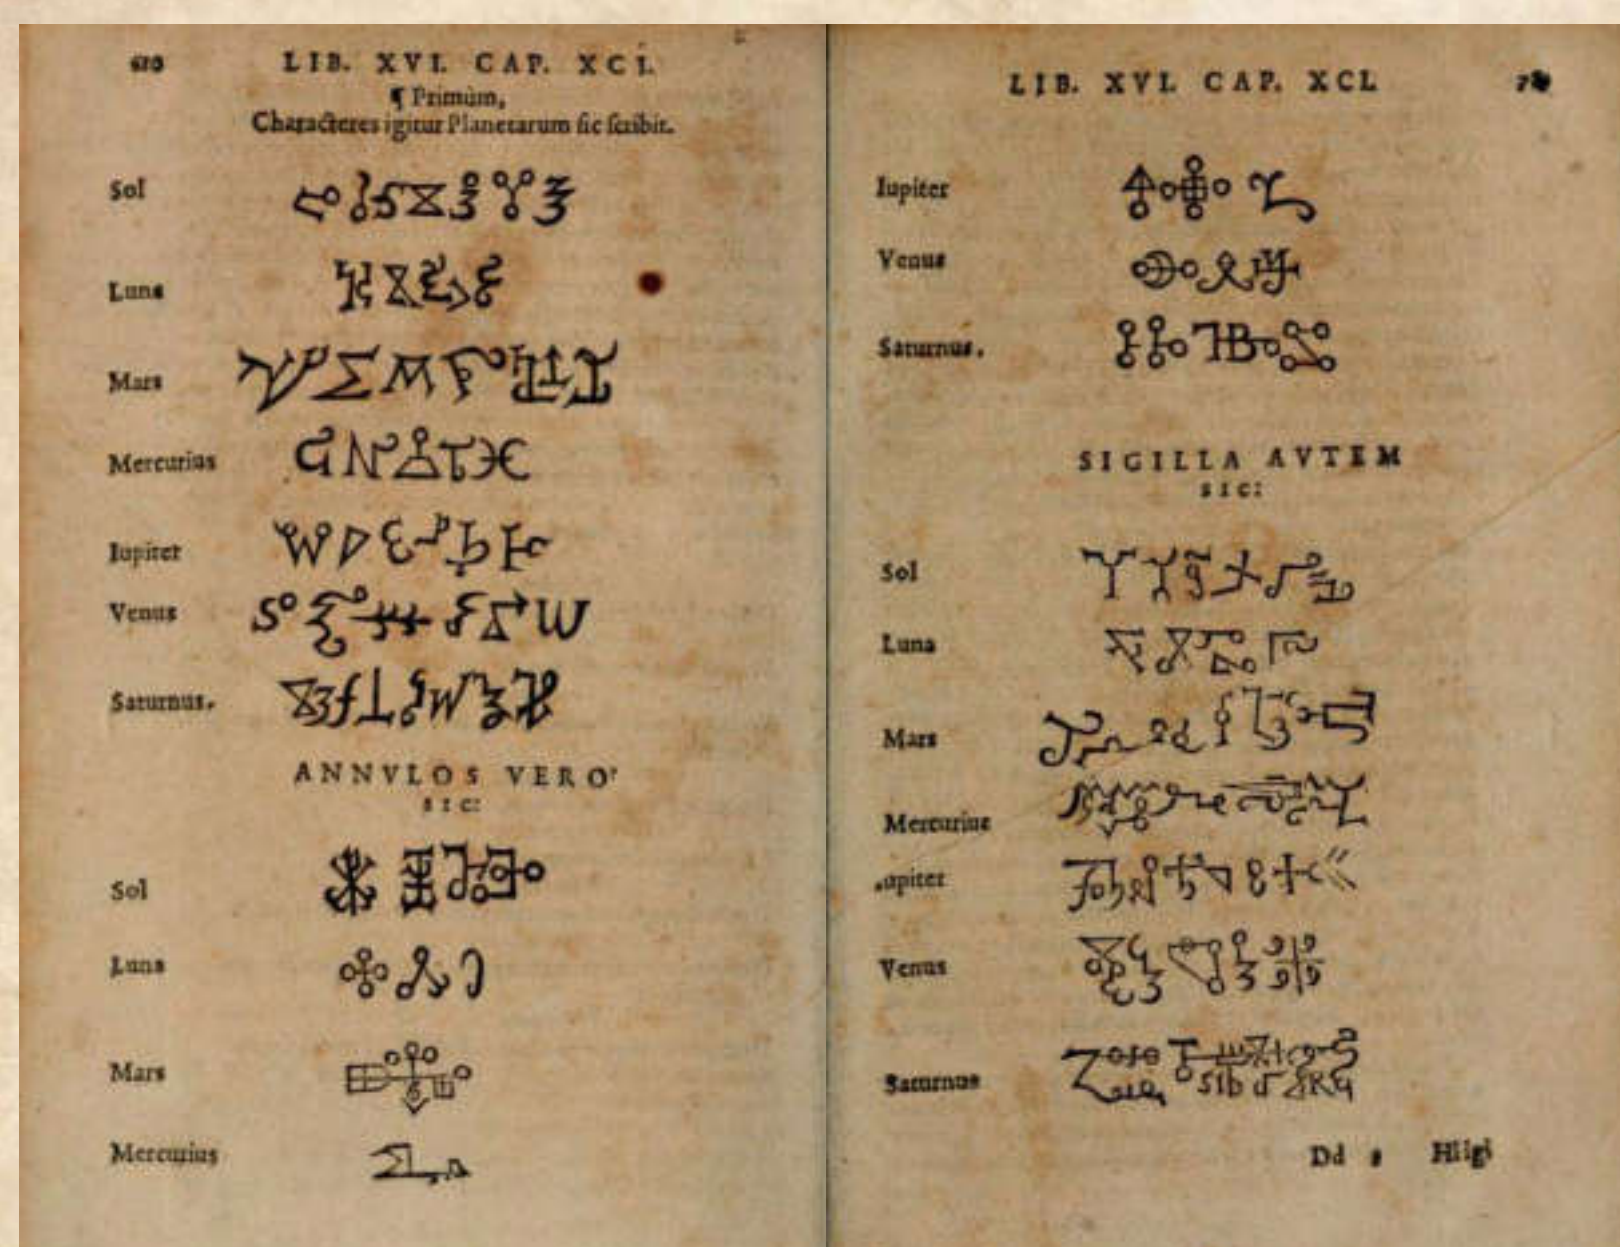 LIB. XVI. CAP. XCI.
¶ Primùm,
Characteres igitur Planetarum sic scribit.
Sol
Luna
Mars
Mercurius
Iupiter
Venus
Saturnus.
ANNVLOS VERO
SIC:
Sol
Luna
Mars
Mercurius
LIB. XVI. CAP. XCI.
Iupiter
Venus
Saturnus.
SIGILLA AVTEM
SIC:
Sol
Luna
Mars
Mercurius
Iupiter
Venus
Saturnus
Dd